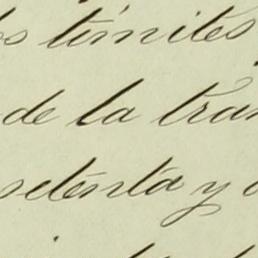 os límites
de la tran
setenta y o